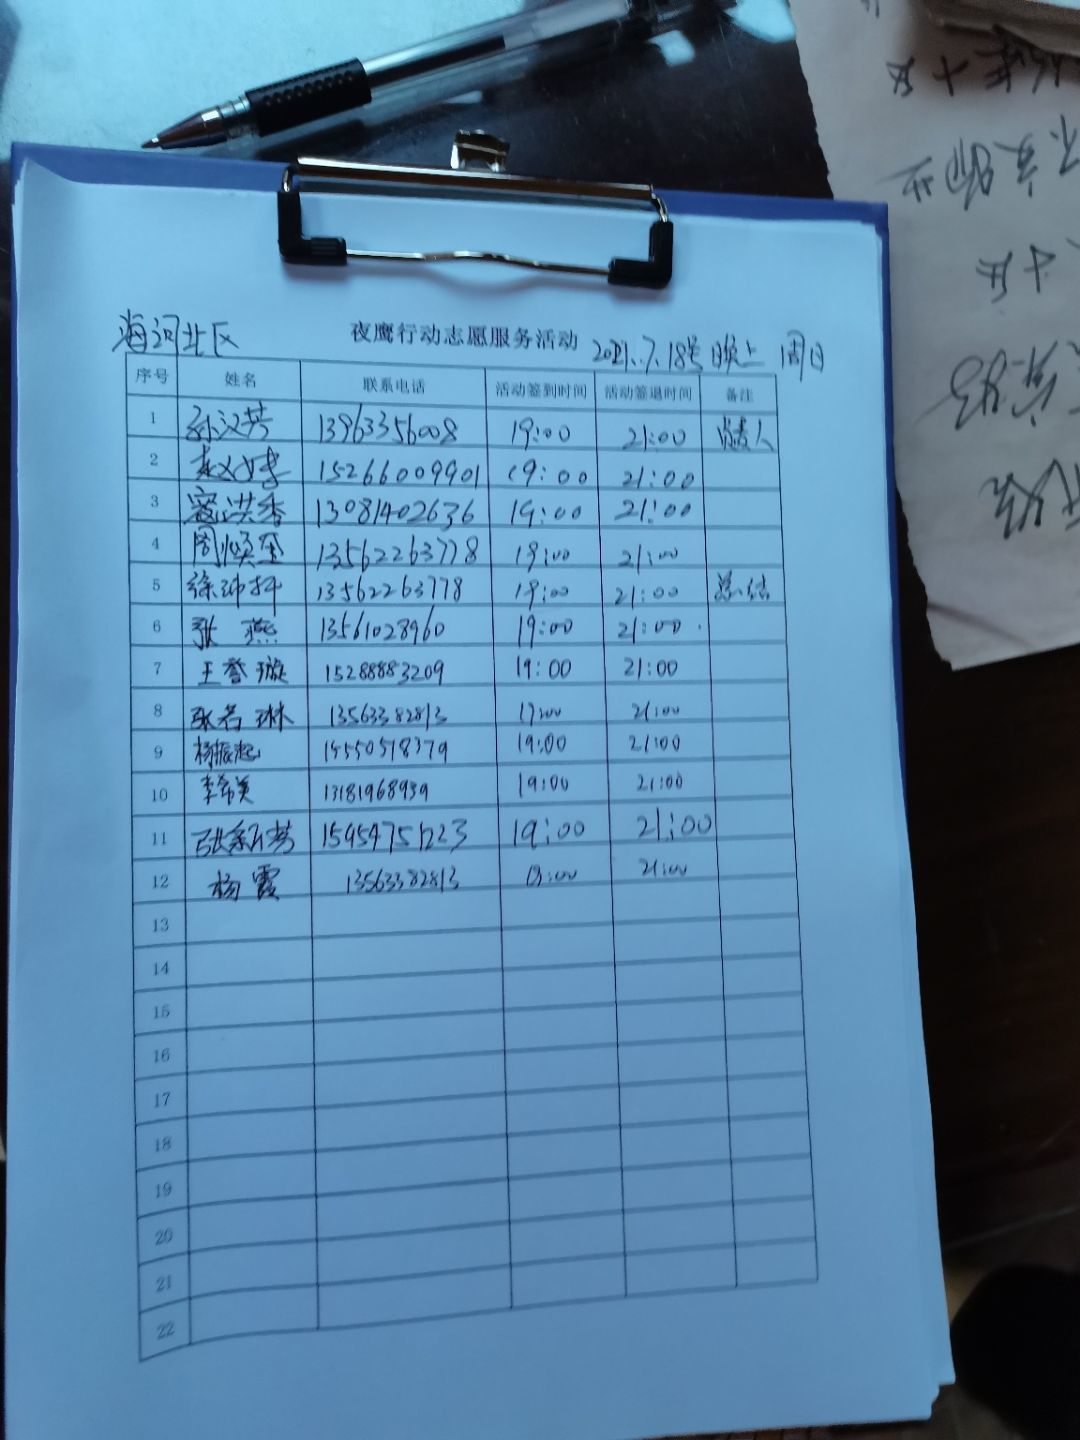 海河北区 夜鹰行动志愿服务活动 2021.7.18号晚上 周日
序号 姓名 联系电话 活动签到时间 活动签退时间 备注
1 孙汉芳 13963356008 19:00 21:00 负责人
2 15266009901 19:00 21:00
3 寇洪香 13081402636 19:00 21:00
4 周焕全 13562263778 19:00 21:00
5 徐沛 13562263778 19:00 21:00 总结
6 张燕 13561028960 19:00 21:00
7 王誉璇 15288883209 19:00 21:00
8 张若琳 13563382813 19:00 21:00
9 杨振起 15550518379 19:00 21:00
10 李希美 13181968939 19:00 21:00
11 张 芳 15954751223 19:00 21:00
12 杨霞 13563382813 19:00 21:00
13
14
15
16
17
18
19
20
21
22